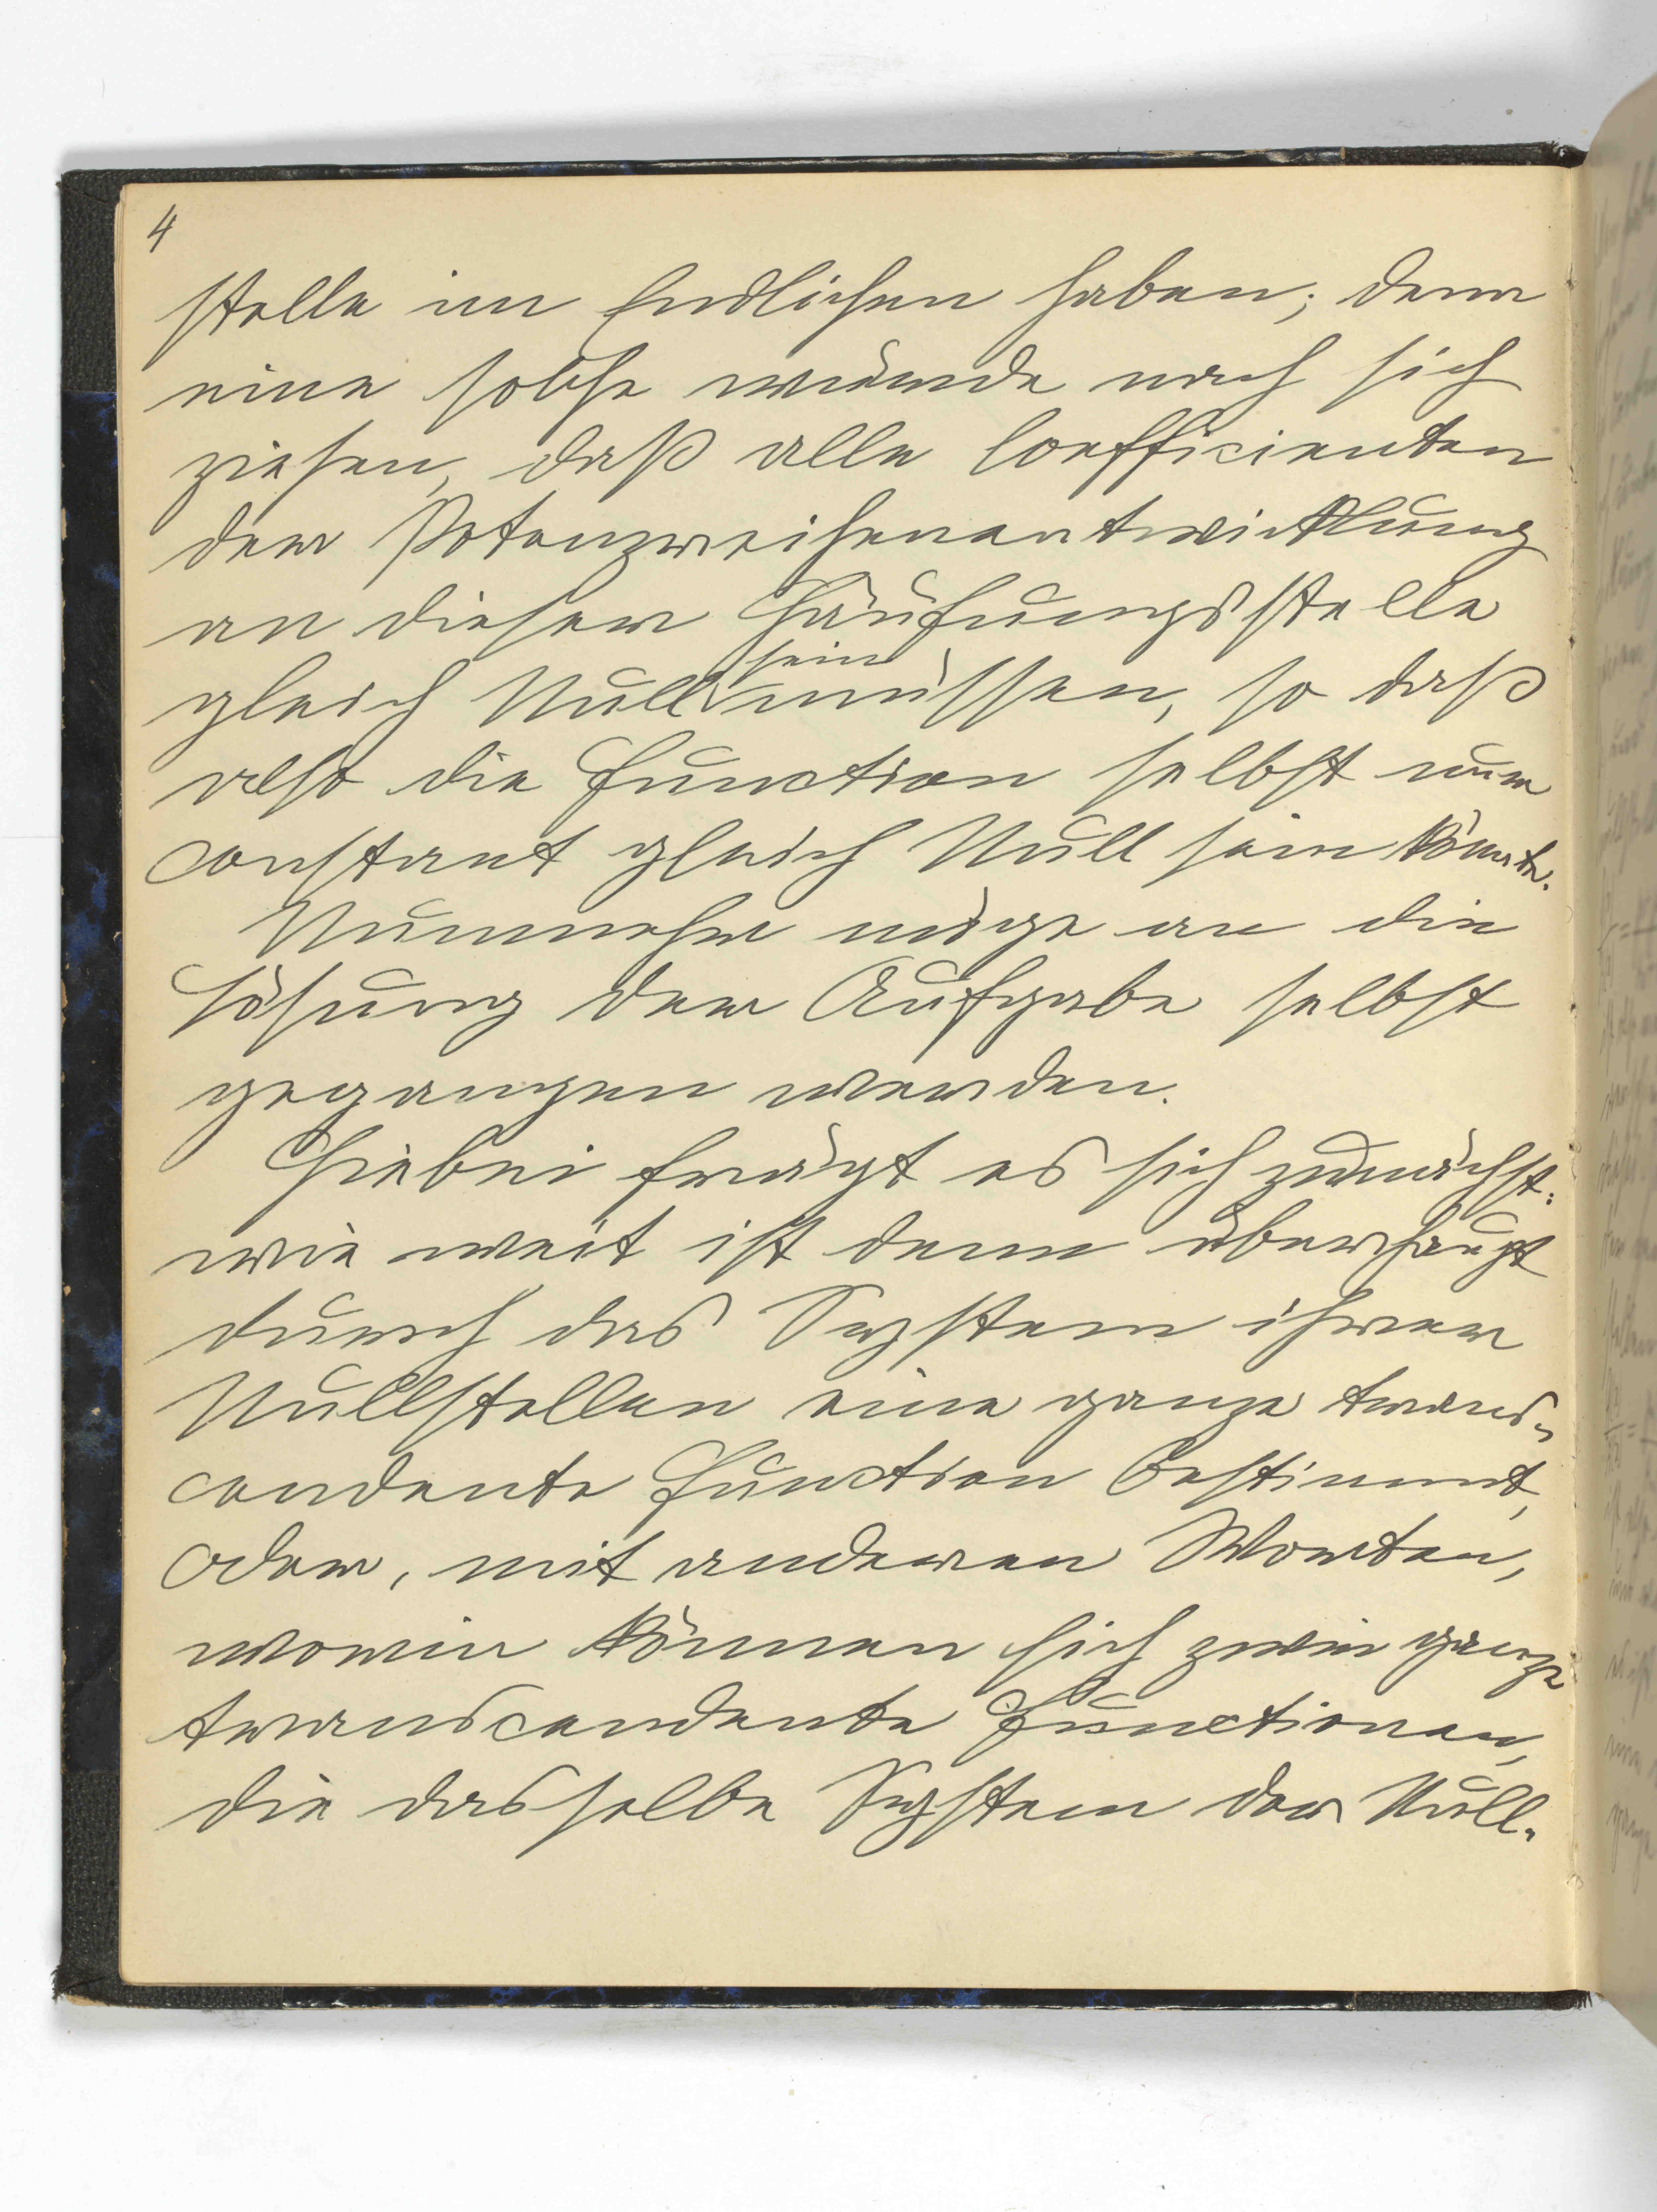 4
stelle im Endlichen haben; denn
eine solche würde nach sich
ziehen, daß alle Coefficienten
der Potenzreihenentwicklung
an dieser Häufungsstelle
sein
gleich Null müssen, so daß
also die Function selbst nur
constant gleich Null sein könnte.
Nunmehr möge an die
Lösung der Aufgabe selbst
gegangen werden.
Hiebei frägt es sich zunächst:
wie weit ist denn überhaupt
durch das System ihrer
Nullstellen eine ganze trans-
cendente Function bestimmt,
oder, mit anderen Worten,
worin können sich zwei ganze
transcendente Functionen,
die dasselbe System der Null-